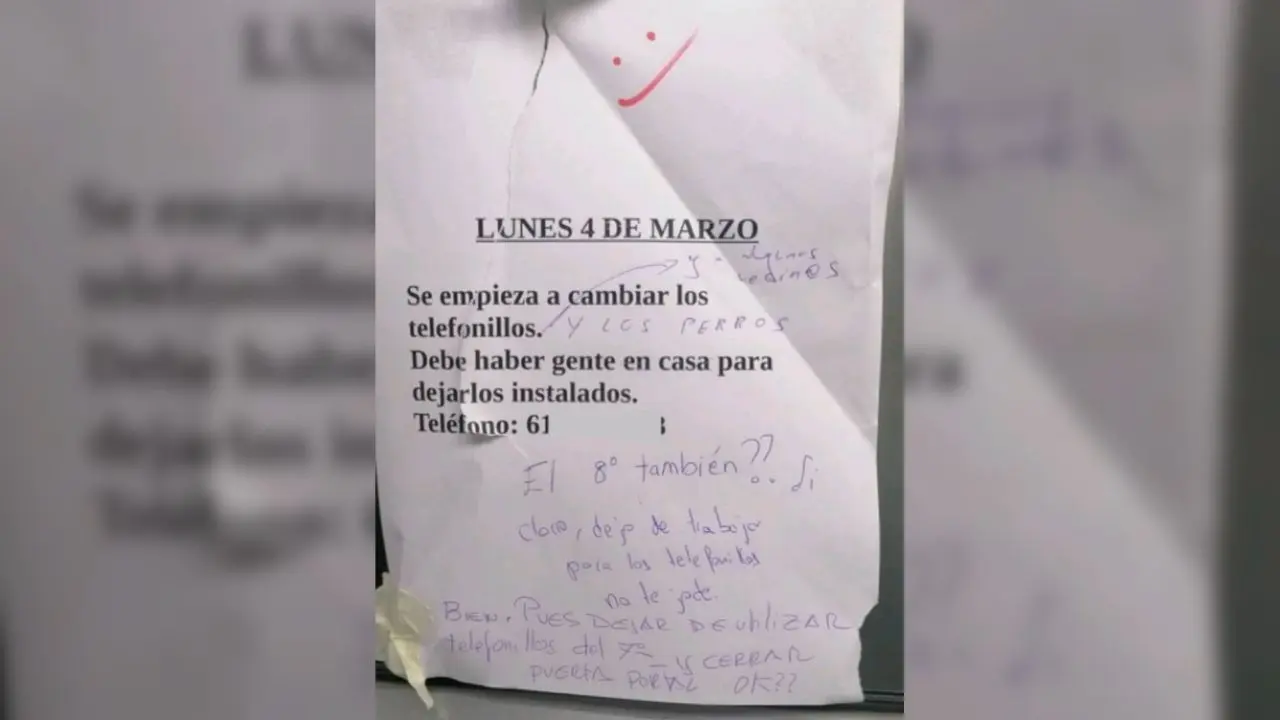 LUNES 4 DE MARZO
y algunos
vecin@s
Se empieza a cambiar los
telefonillos. Y LOS PERROS
Debe haber gente en casa para
dejarlos instalados.
Teléfono: 61
El 8º también?? Si
claro, dejo de trabajar
para los telefonillos
no te jode.
BIEN. PUES DEJAR DE UtiliZAR
telefonillos del 7º y CERRAR
PUERTA PORTAL OK??